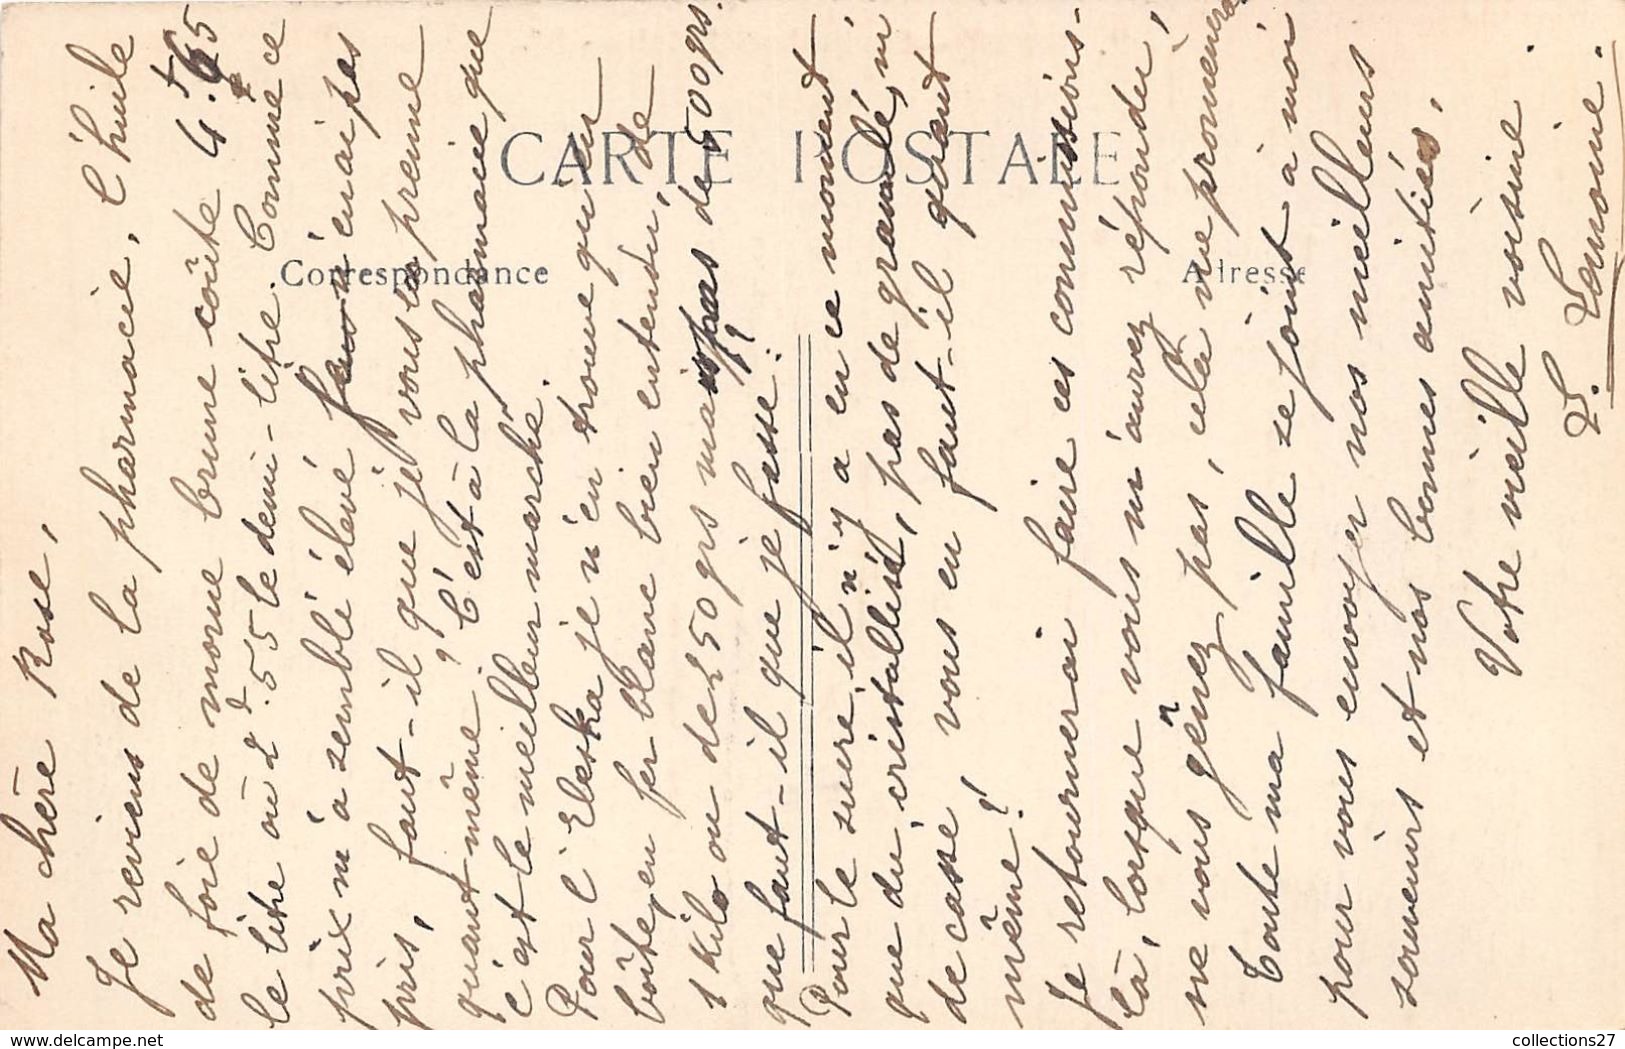 Ma chère Rose,
Je reviens de la pharmacie, l'huile
de foie de morue brune coûte 4f.65
le litre ou 2f.55 le demi-litre. Comme ce
prix m'a semblé élevé je n'en ai pas
pris, faut-il que je vous la prenne
quant même? C'est à la pharmacie que
c'est le meilleur marché.
Pour l'Eleska je n'en trouve qu'en
boîte, en fer blanc bien entendu, de
1 kilo ou de 250 grs mais pas de 500 grs.
que faut-il que je fasse?
Pour le sucre, il n'y a en ce moment
que du cristallisé, pas de granulé, ni
de cassé, vous en faut-il quant
même?
Je retournerai faire ces commissions-
là, lorsque vous m'aurez répondu,
ne vous gênez pas, cela me promènera
Toute ma famille se joint à moi
pour vous envoyer nos meilleurs
souvenirs et nos bonnes amitiés,
Votre vieille voisine
L. Lemoine.
CARTE POSTALE
Correspondance
Adresse
collections27